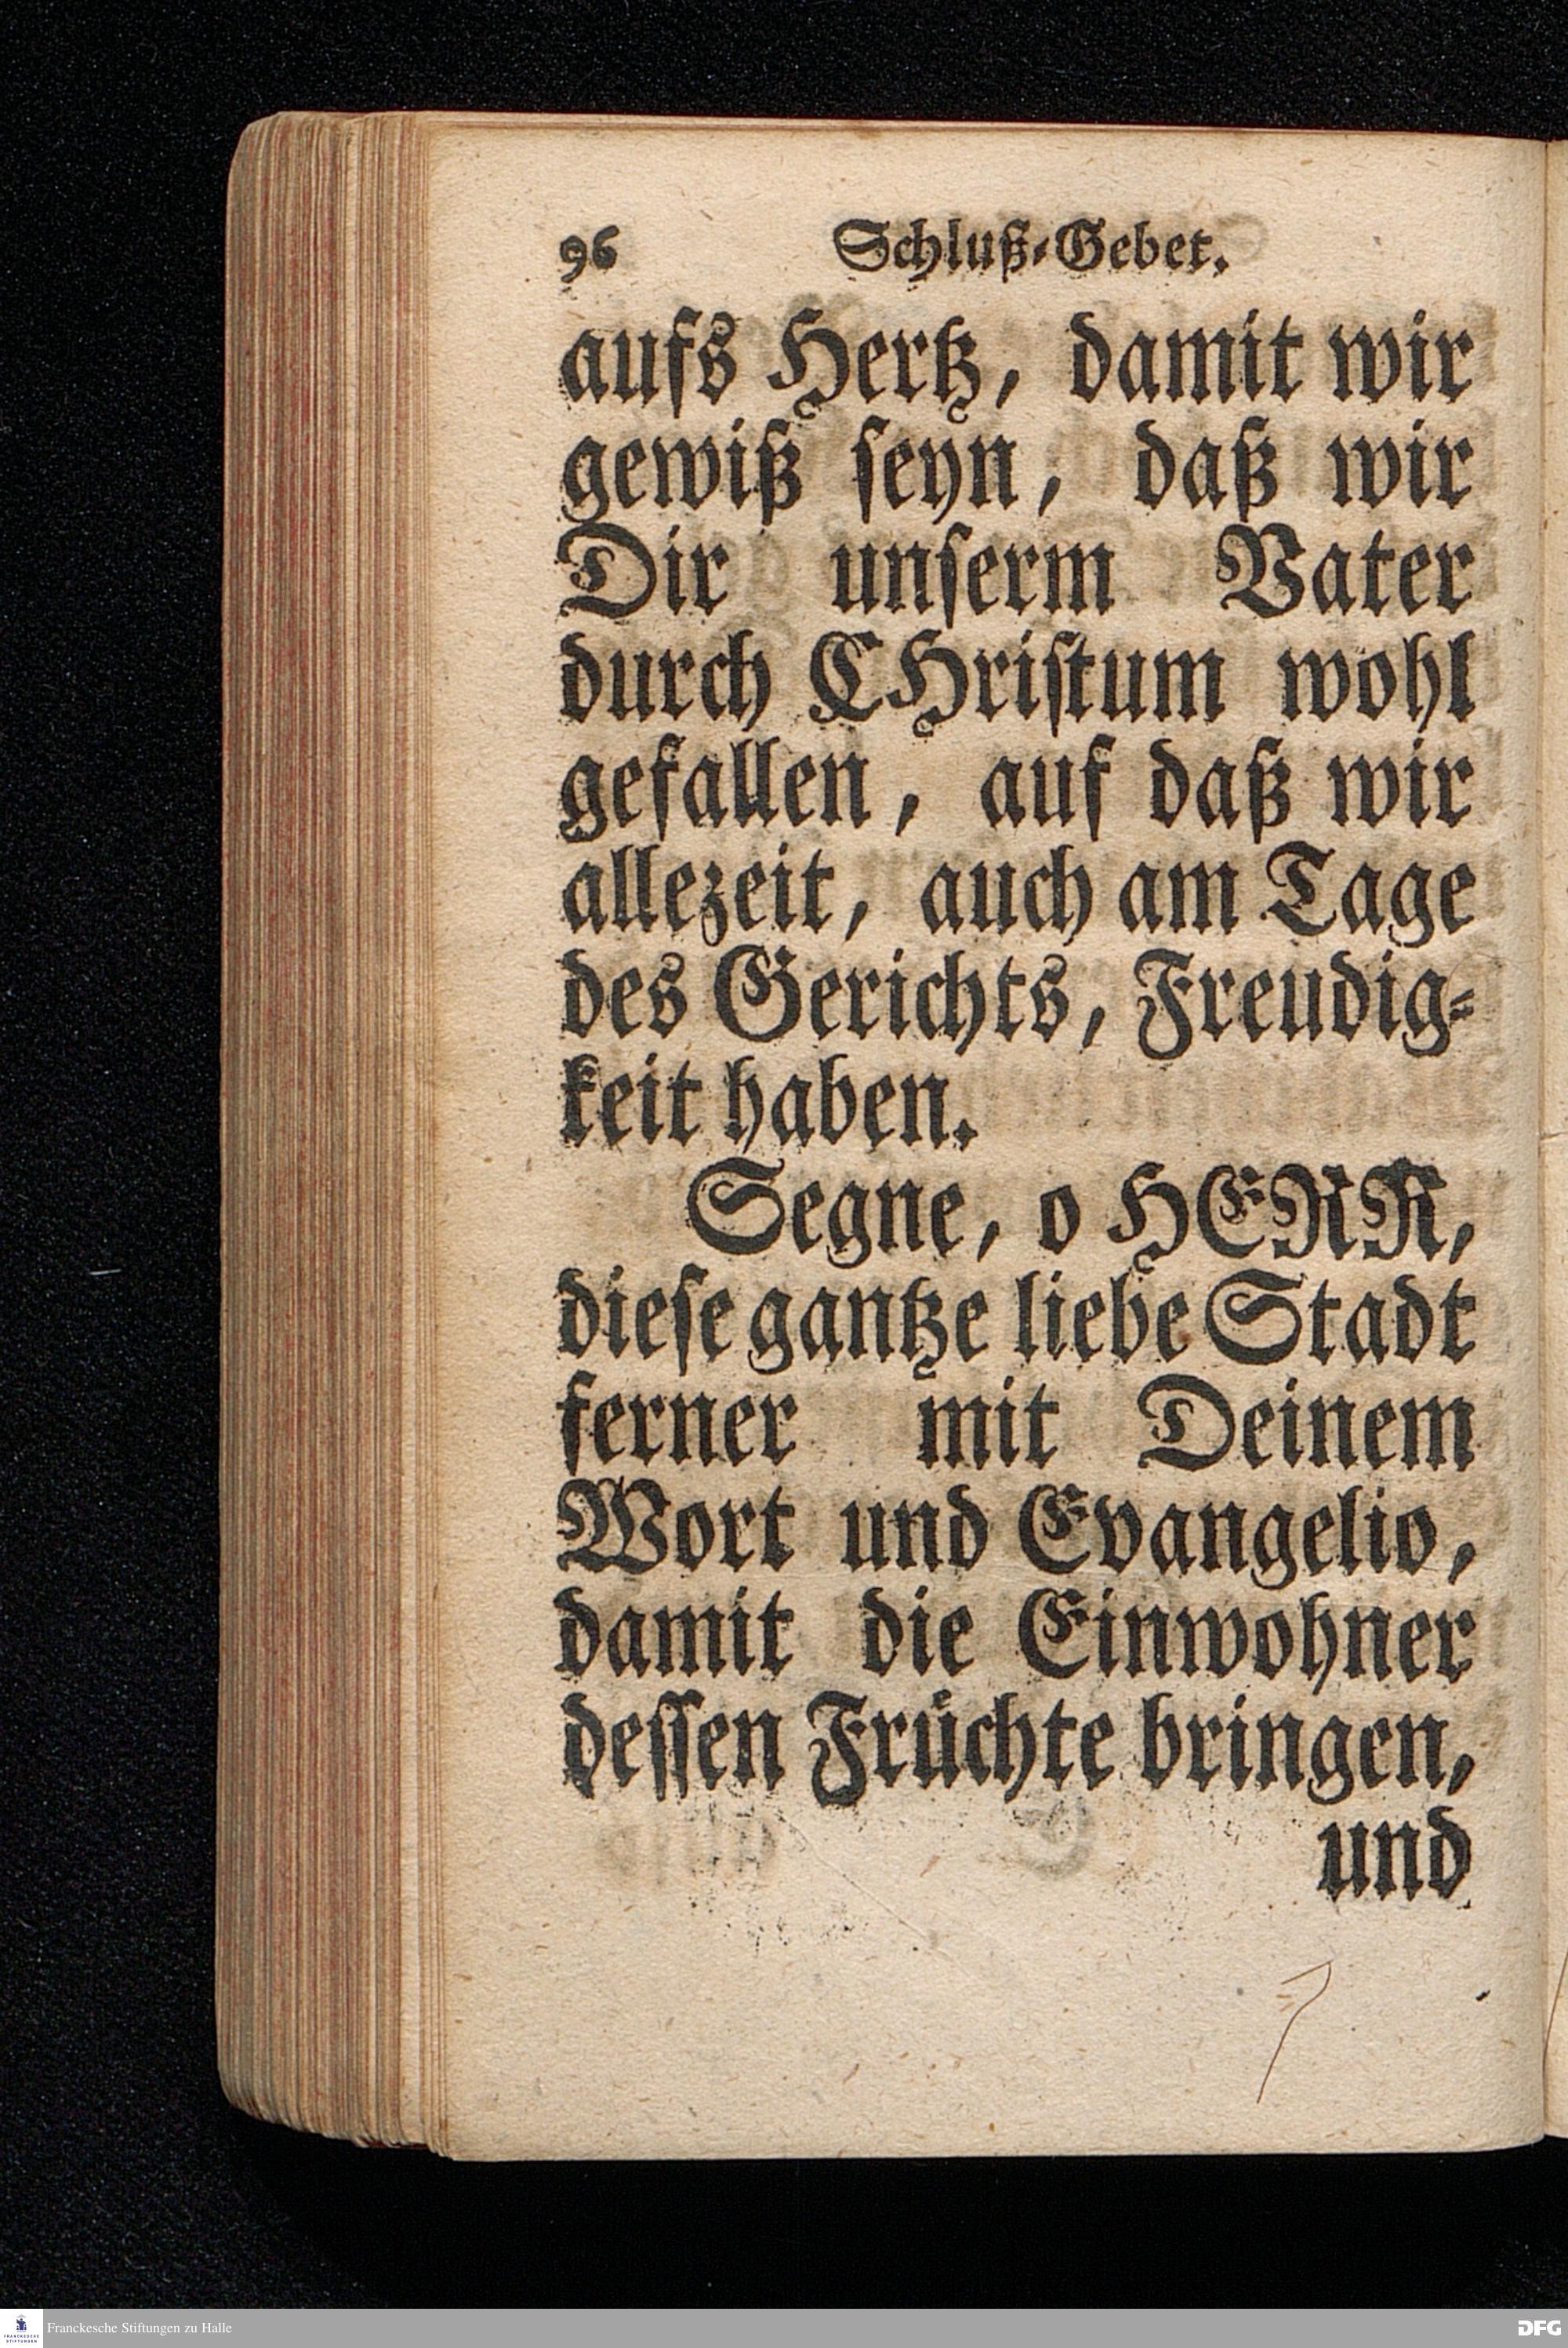 96 Schluß-Gebet.
aufs Hertz, damit wir
gewiß seyn, daß wir
Dir unserm Vater
durch CHristum wohl
gefallen, auf daß wir
allezeit, auch am Tage
des Gerichts, Freudig-
keit haben.
Segne, o HERR,
diese gantze liebe Stadt
ferner mit Deinem
Wort und Evangelio,
damit die Einwohner
dessen Früchte bringen,
und
FRANCKESCHE
STIFTUNGEN
Franckesche Stiftungen zu Halle
DFG